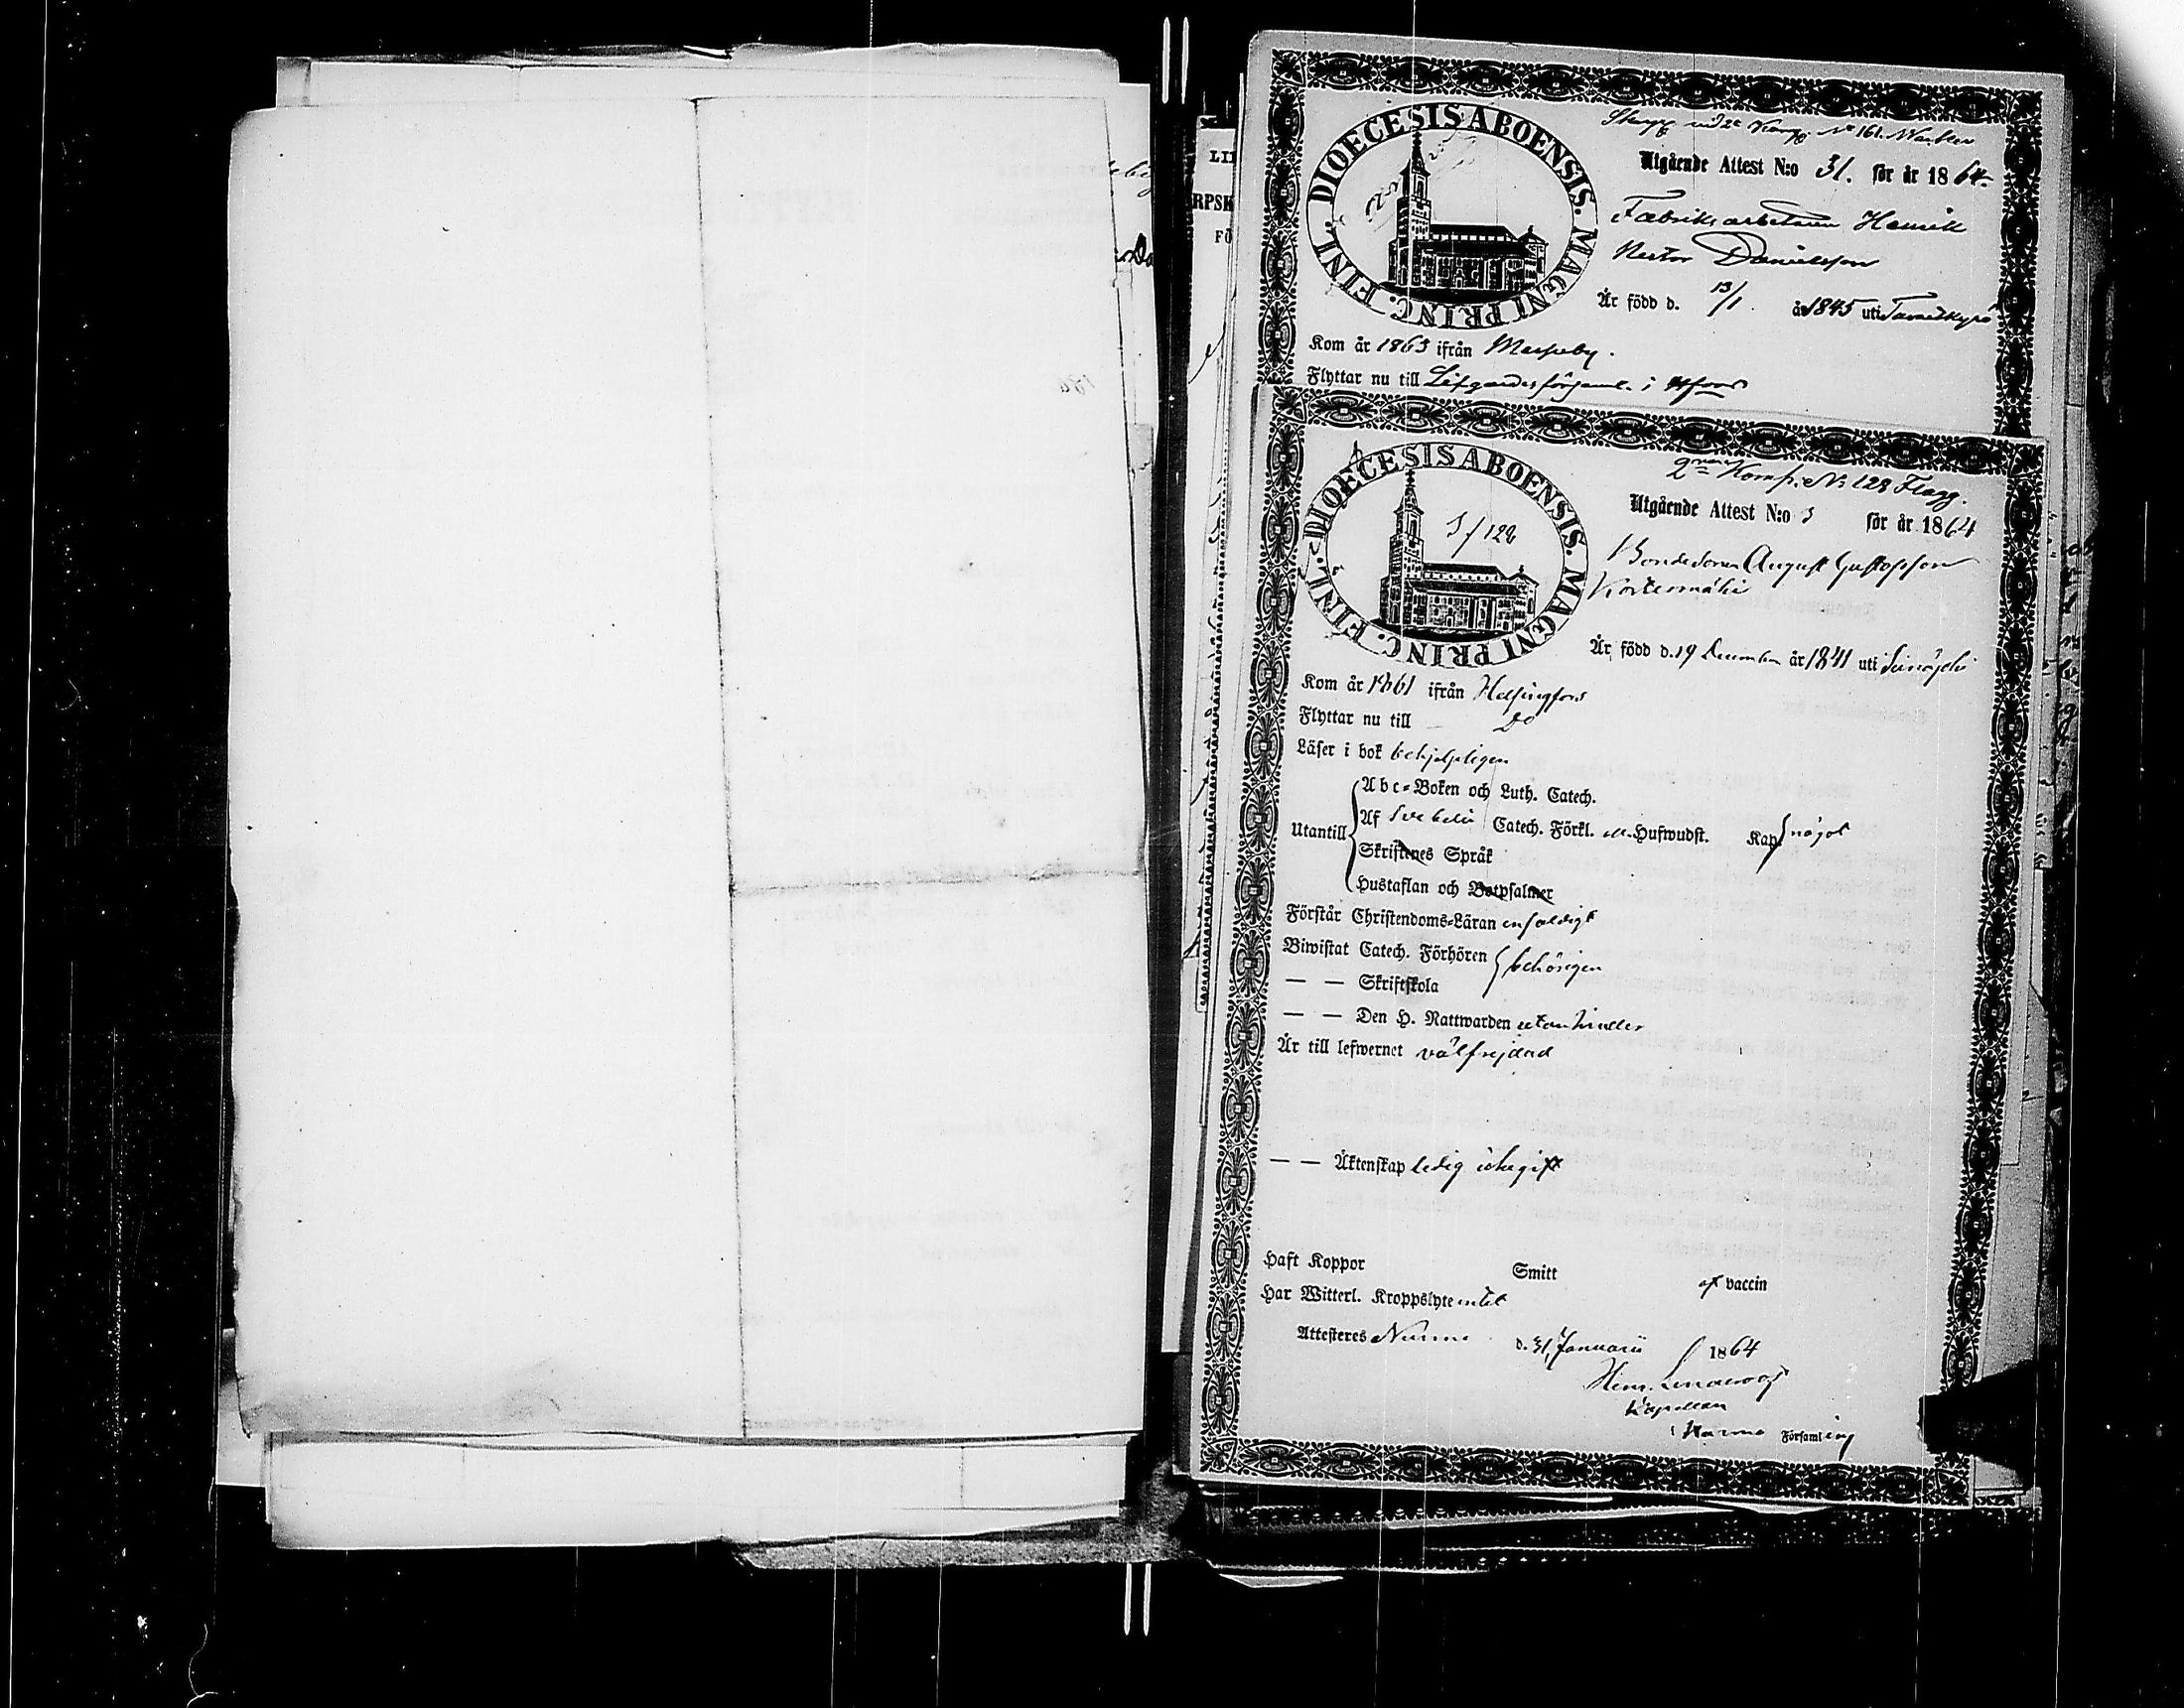 DIOECESIS ABOENSIS. MAGNI PRINC. FINL.
Utgående Attest N:o 31. för år 1864.
Fabriksarbetaren Henrik
Nestor Danielsson
Är född d. 13/1. år 1845 uti Tavastkyro
Kom år 1863 ifrån
Flyttar nu till Lifgardesförsaml. i Hfors
DIOECESIS ABOENSIS. MAGNI PRINC. FINL.
3/128
2dra Komp:e No 128 Flagg.
Utgående Attest N:o 3 för år 1864
Bondesonen August Gustafsson
Är född d. 19 December år 1841 uti
Kom år 1861 ifrån Helsingfors
Flyttar nu till — Do
Läser i bok behjelpligen
Abc-Boken och Luth. Catech.
Utantill Af Svebelii Catech. Förkl. Hufwudst. Kap. något
Skriftenes Språk
Hustaflan och Botpsalmer
Förstår Christendoms-Läran enfaldigt
Biwistat Catech. Förhören behörigen
— — Skriftskola
— — Den H. Nattwarden utan hinder
Är till lefwernet välfrejdad
— — Äktenskap ledig ickegift
Haft Koppor Smitt af vaccin
Har Witterl. Kroppslyte intet
Attesteres Nurmo d. 31 Januarii 1864
Kapellan
i Nurmo Församling
LIF
RPSK
FÖ